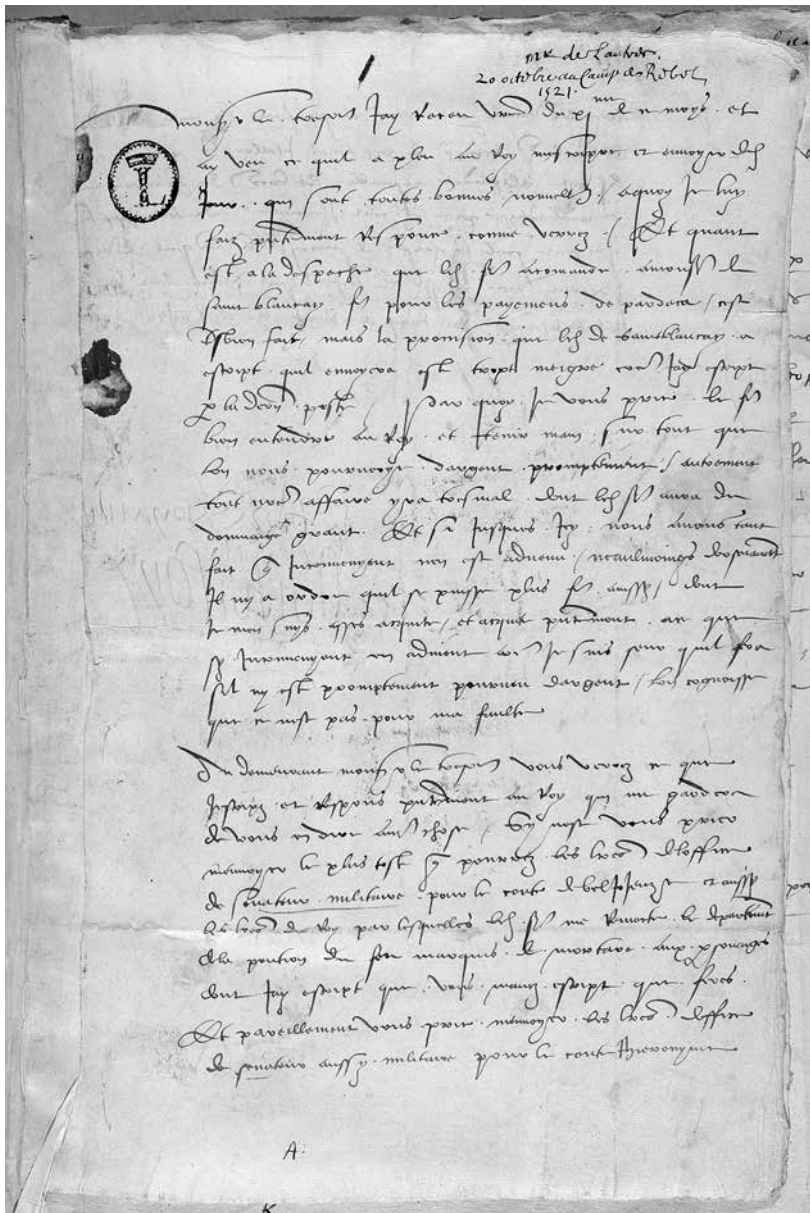 Mr de Lautrec.
20 octobre au Camp de Rebec
1521.
L
mons.r le tresor.r Jay Receu v.re du xj me de ce moys et
ay veu ce quil a pleu au Roy mescripre et envoyer led.
Jour qui sont toutes bonnes nouvelles / a quoy Je luy
faiz p.ntement Responce comme verrez / Et quant
est a la despeche que led. s.r a comande a mons.r de
saint blancay p.r pour les payemens de pardeca / cest
tresbien fait / mais la provision que led. de Saintblancay a
escript quil envoyera est trop meigre co.e Jay escript
p. la dern. poste / Par quoy Je vous prie le f.e
bien entendre au Roy et tenir main sur tout que
lon nous pourvoye dargent promptement / autrement
tout n.re affaire yra tresmal dont led. s.r aura du
dommaige grant Et si Jusques Icy nous avons tant
fait q. Inconvenyent nen est advenu / neaulmoings doresnavant
Il ny a ordre quil se puisse plus f.e ainssy / dont
Je men suys asses acquite / et acquite p.ntement a ce que
sy Inconvenyent en advient co.e Je suis seur quil fera
sil ny est promptement pourveu dargent / lon cognoisse
que ce nest pas pour ma faulte
Au demeurant mons.r le tresor.r vous verrez ce que
Jescriptz et Respons p.ntement au Roy qui me gardera
de vous en dire au.e chose / Sy nest vous prier
menvoyer le plus tost q. pourrez les l.res doffice
de senateur militaire pour le conte de beljoyeuse et aussy
les l.res du Roy par lesquelles led. s.r me Remecte le departem.t
de la portion du feu marquis de mortare aux p.sonaiges
dont Jay escript que vous mavez escript que feres
Et pareillement vous prie menvoyer les l.res doffice
de senateur aussy militaire pour le conte hieronyme
A.